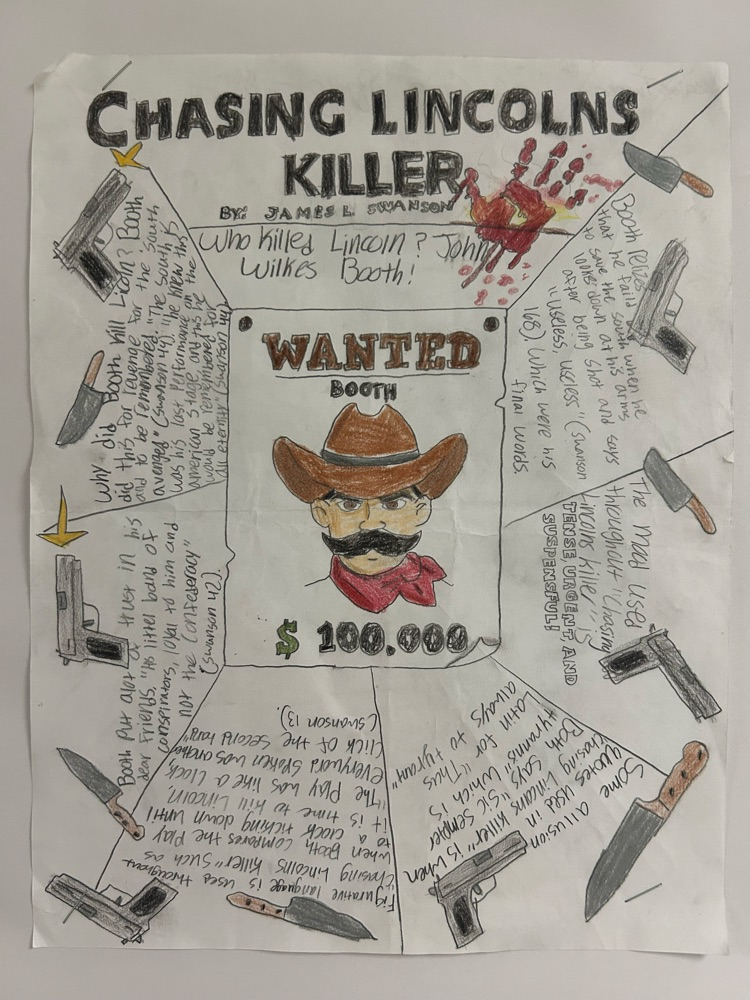 CHASING LINCOLNS
KILLER
BY: JAMES L. SWANSON
Who killed Lincoln? John
Wilkes Booth!
WANTED
BOOTH
$ 100,000
Why did Booth kill Licoln? Booth
did this for revenge for the South
and to be remembered. "The South is
avenged" (Swanson 49). "he knew this
was his last performance on the
American Stage, and this he
would be remembered for
all eternity" (Swanson 44)
Booth put alot of trust in his
dear friends, "his littel band of
conspirators, loyal to him and
not the Confederacy"
(Swanson 42).
Figurative language is used throughout
"Chasing Lincolns Killer" such as
when Booth compares the play
to a clock ticking down until
it is time to kill Lincoln.
"The Play was like a clock,
every word spoken was another
click of the second hand"
(Swanson 13).
Some allusion
quotes used in
"Chasing Lincolns Killer" is when
Booth says "Sic Semper
tyrannis" which is
Latin for "Thus
always to tyrant"
The mood used
throughout "Chasing
Lincolns Killer" is
TENSE URGENT AND
SUSPENSFUL!
Booth
that he faild when he
to save the South
looks down at his arms
after being shot and says
"Useless, useless" (Swanson
168). Which were his
final words.